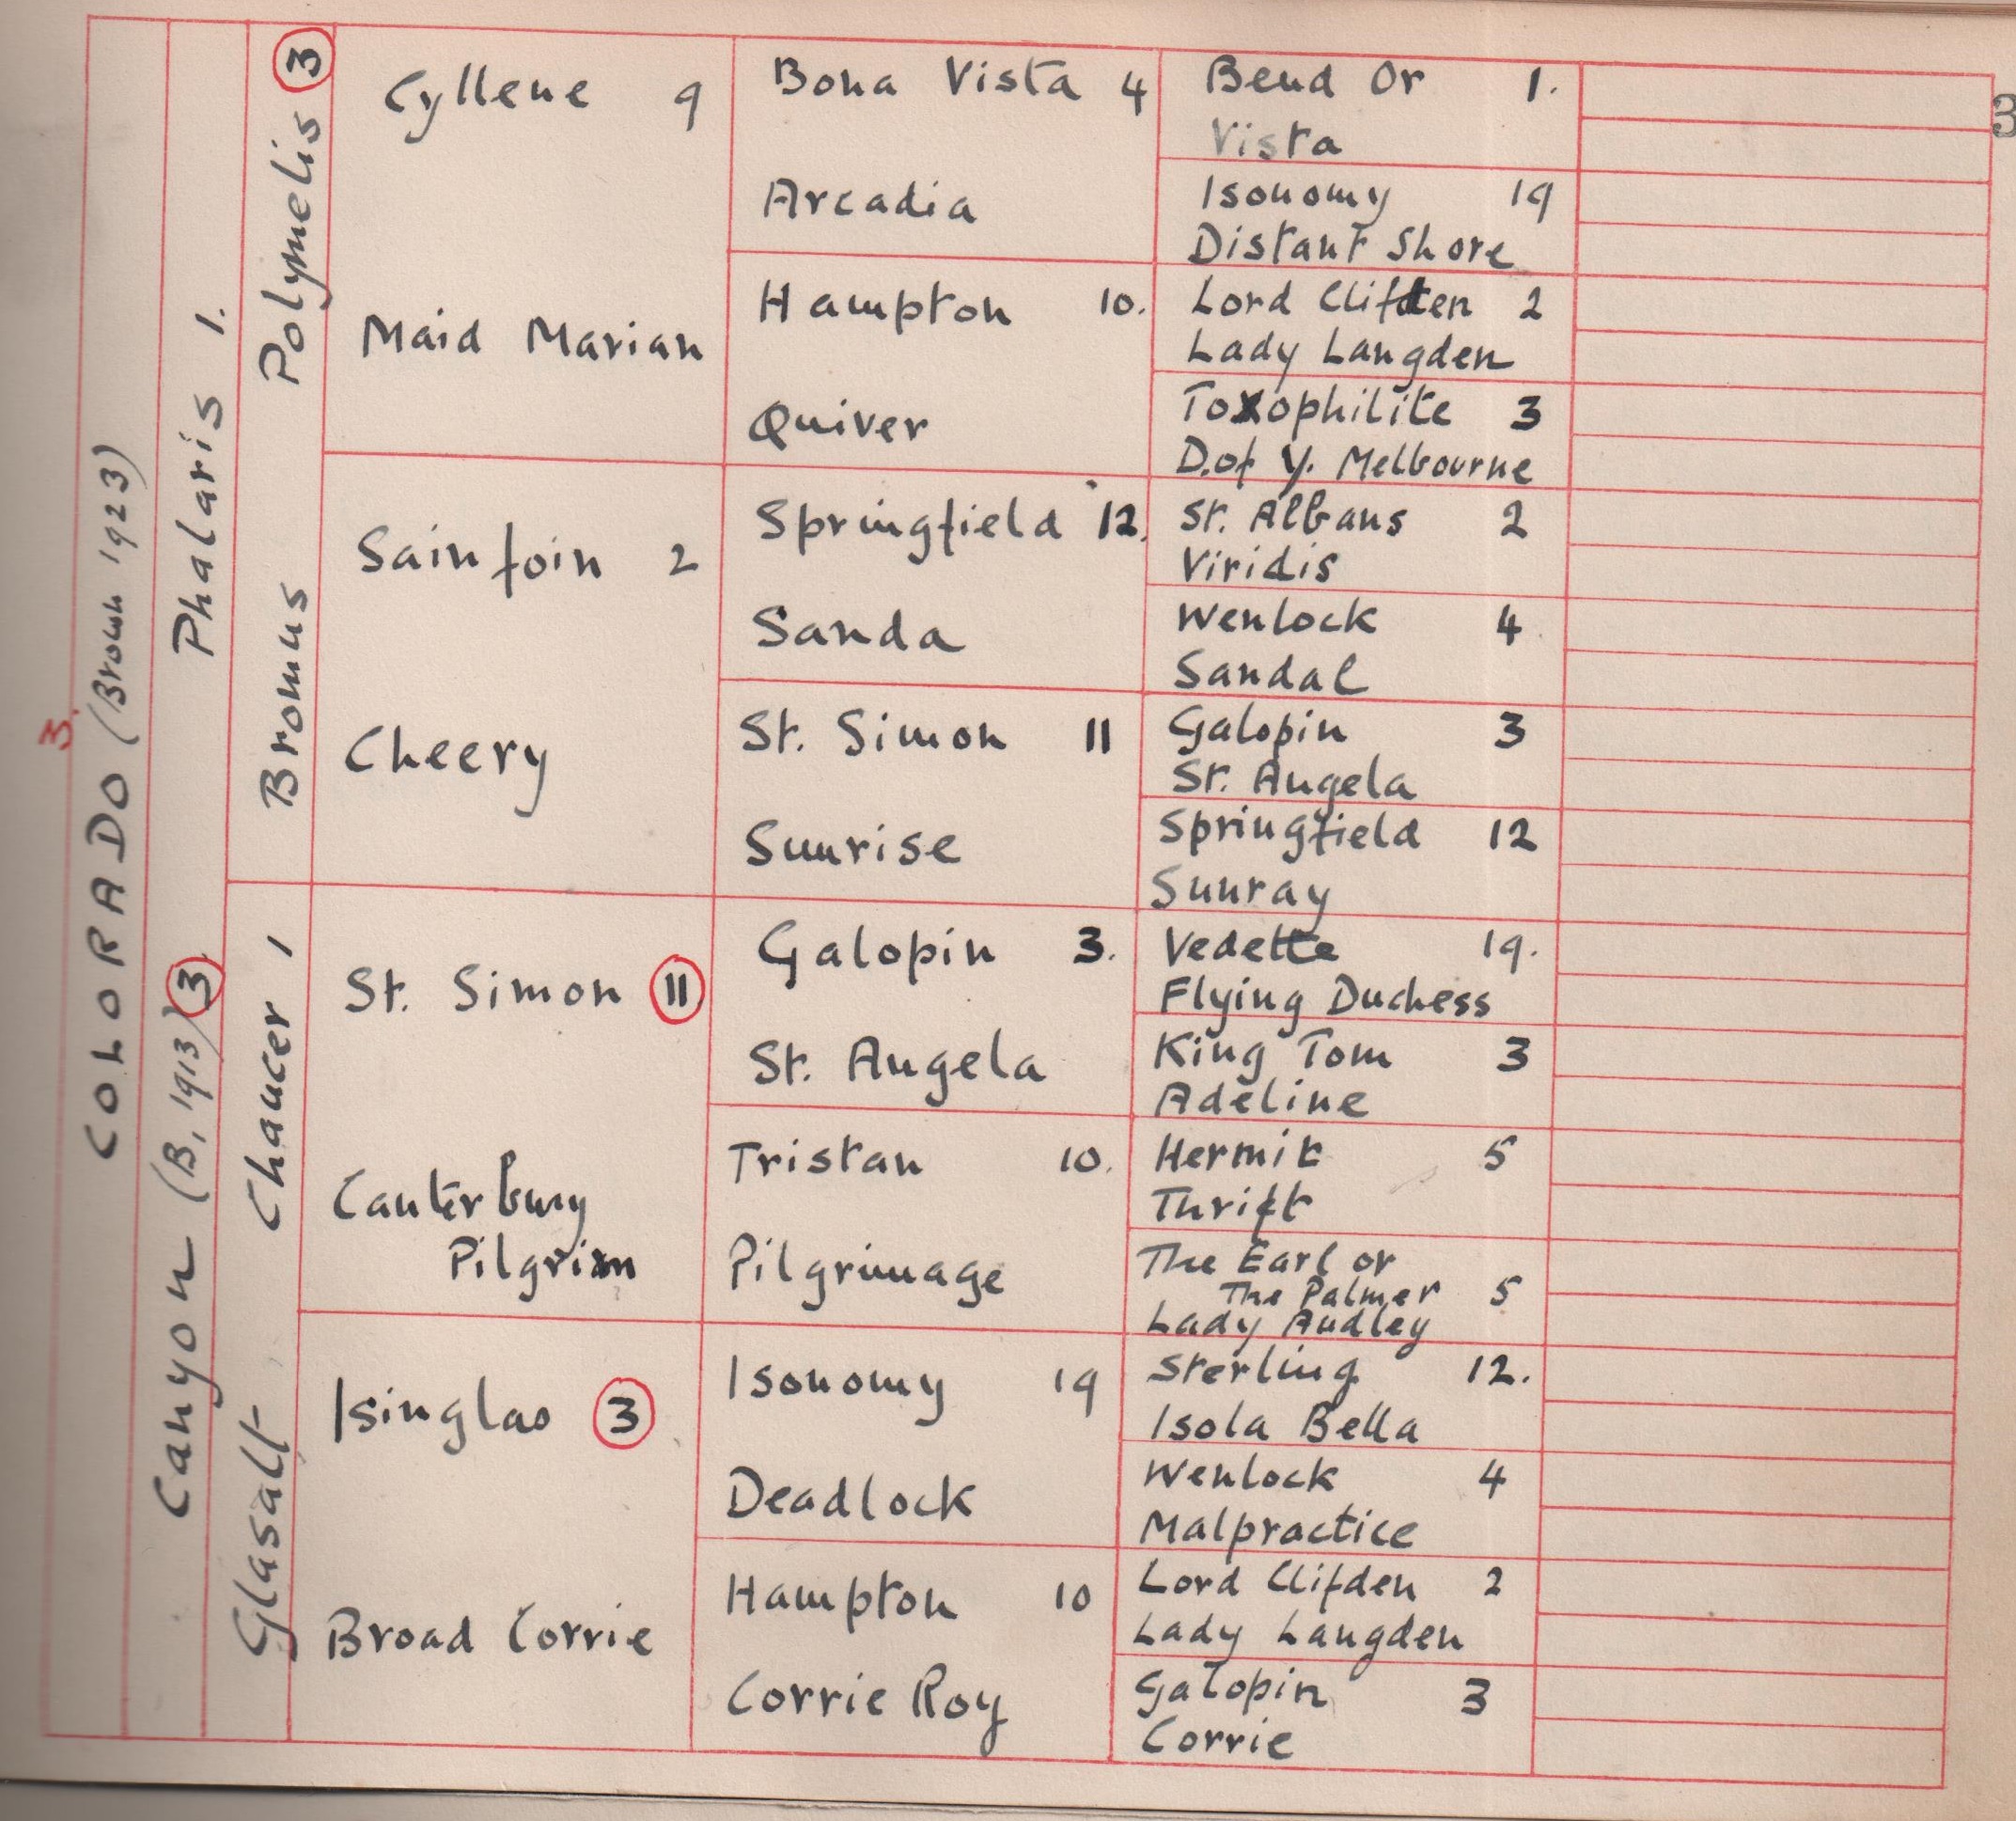 3.
COLORADO (Brown 1923)
Phalaris 1.
Canyon (B, 1913) 3.
Polymelis 3
Bromus
Chaucer 1
Glasalt
Cyllene 9
Maid Marian
Sainfoin 2
Cheery
St. Simon 11
Canterbury
Pilgrim
Isinglass 3
Broad Corrie
Bona Vista 4
Arcadia
Hampton 10.
Quiver
Springfield 12.
Sanda
St. Simon 11
Sunrise
Galopin 3.
St. Angela
Tristan 10.
Pilgrimage
Isonomy 19
Deadlock
Hampton 10
Corrie Roy
Bend Or 1.
Vista
Isonomy 19
Distant Shore
Lord Clifden 2
Lady Langden
Toxophilite 3
D.of Y. Melbourne
St. Albans 2
Viridis
Wenlock 4
Sandal
Galopin 3
St. Angela
Springfield 12
Sunray
Vedette 19.
Flying Duchess
King Tom 3
Adeline
Hermit 5
Thrift
The Earl or
The Palmer 5
Lady Audley
Sterling 12.
Isola Bella
Wenlock 4
Malpractice
Lord Clifden 2
Lady Langden
Galopin 3
Corrie
3